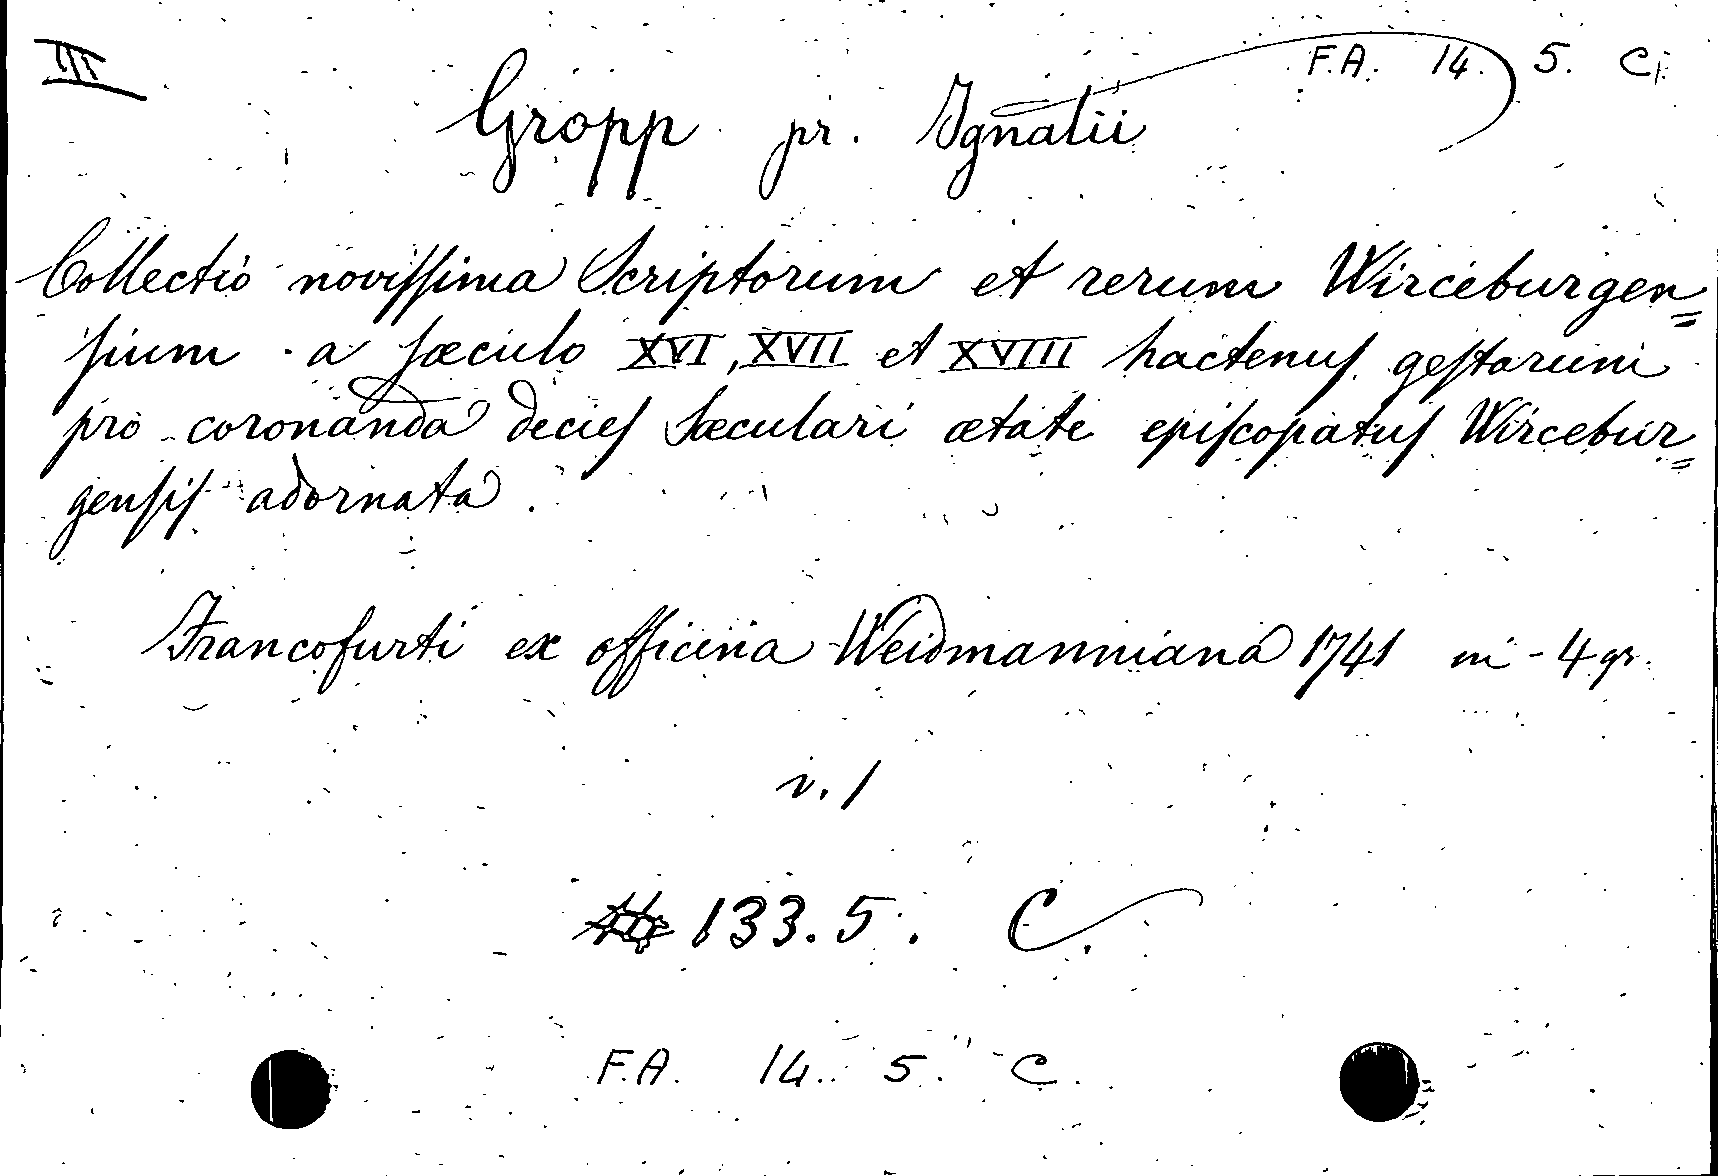 III F.A. 14. 5. C.
Gropp pr. Ignatii
Collectio noviſſima Scriptorum et rerum Wirceburgen=
ſium a ſæculo XVI, XVII et XVIII hactenuſ geſtarum
pro coronanda decieſ Sæculari ætate epiſcopatuſ Wircebur=
genſiſ adornata.
Francofurti ex officina Weidmanniana 1741 in-4 gr.
v. 1
133. 5. C.
F.A. 14. 5. C.